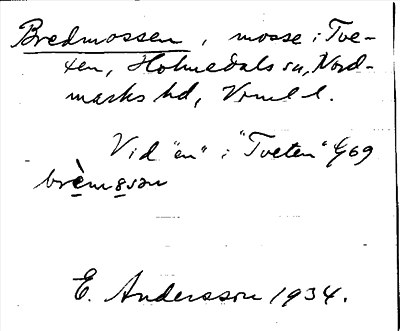 Bredmossen, mosse i Tve-
ten, Holmedals sn, Nord-
marks hd, Vrml l.
Vid "en" i "Tveten" G69
brèmɷsən
E. Andersson 1934.